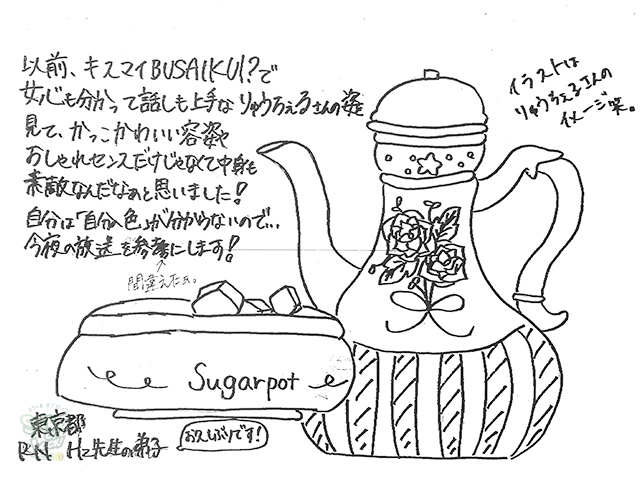 以前、キスマイBUSAIKU!?で
女心も分かって話しも上手なりゅうちぇるさんの姿
見て、かっこかわいい容姿や
おしゃれセンスだけじゃなくて中身も
素敵なんだなぁと思いました!
自分は「自分色」が分からないので…
今夜の放送を参考にします!
↑
間違えたぁ。
イラストは
りゅうちぇるさんの
イメージ笑。
Sugarpot
東京都
RN Hz先生の弟子
お久しぶりです!